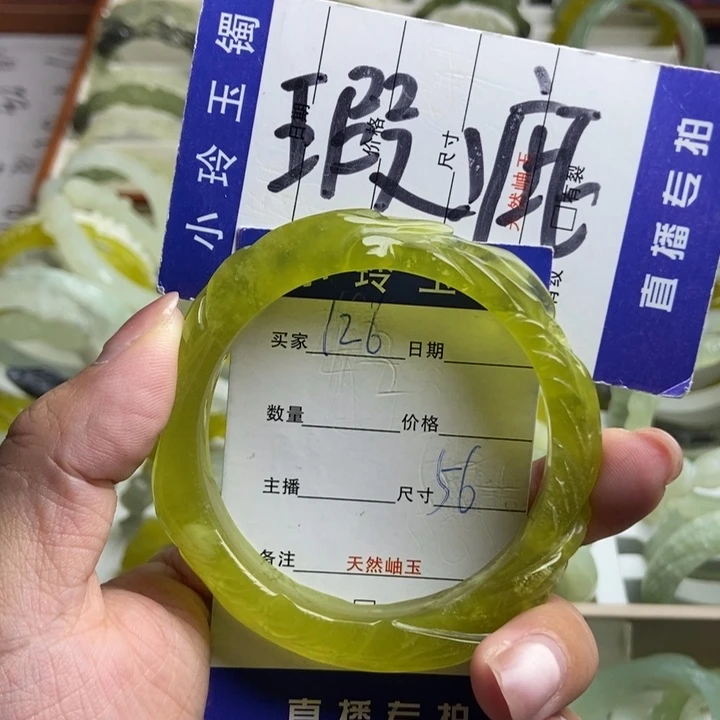 小玲玉镯
瑕底
日期
价格
尺寸
天然岫玉
有裂
直播专拍
买家 126 日期
数量 价格
主播 尺寸 56
备注 天然岫玉
直播专拍